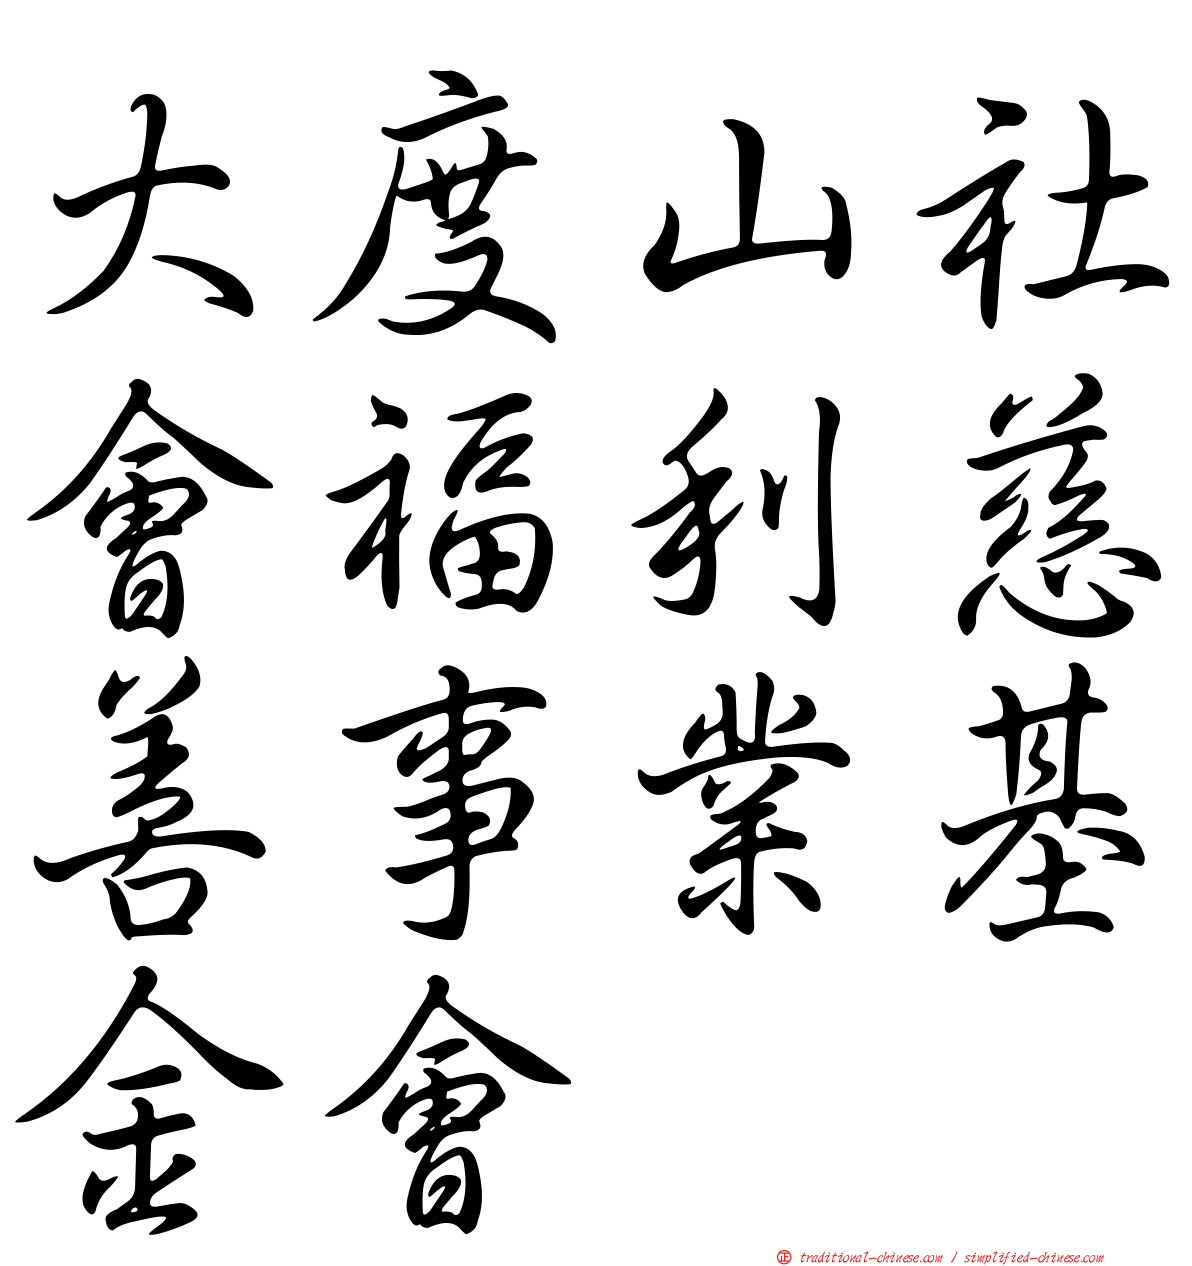 大度山社
會福利慈
善事業基
金會
正 traditional-chinese.com / simplified-chinese.com